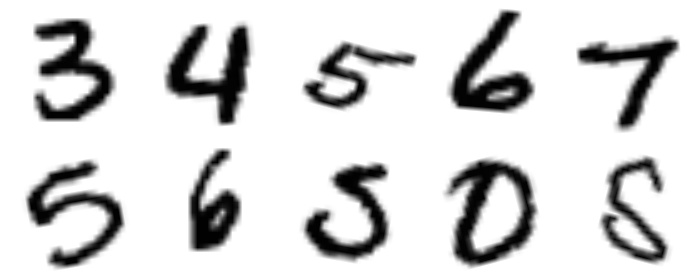 3 4 5 6 7
5 6 5 0 8